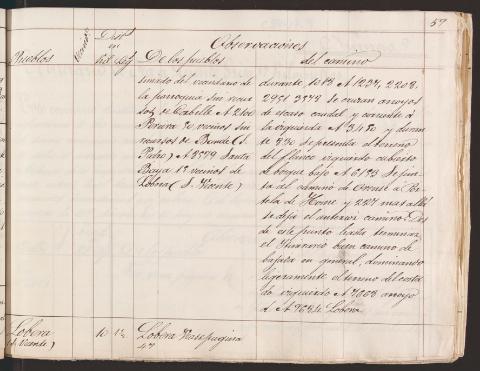 57
Observaciones
Pueblos
Vecinos
Dist
en
De los pueblos
del camino
timado del vecindario de
la parroquia sin recur
sos, de Cabelle A 2100
Pereira 30 vecinos sin
recursos de Bande (S.
Pedro) A 3579 Santa
Baya 15 vecinos de
Lobera (S. Vicente)
durante, 1313 A 1234, 2208,
2951 3578 Se cruzan arroyos
de escaso caudal y corriente á
la izquierda A 3430 y duran
te 330 se presenta el terreno
del flanco izquierdo cubierto
de bosque bajo A 6183 Se jun
ta al camino de Orense á Por
tela de Home y 227 mas allá
se deja el anterior camino. Des
de este punto hasta terminar
el Itinerario buen camino de
bajada en general, dominando
ligeramente el terreno del costa
do izquierdo A 7003 arroyo
A 7634 Lobera
Lobera
(S. Vicente)
Lobera Vease pagina
47